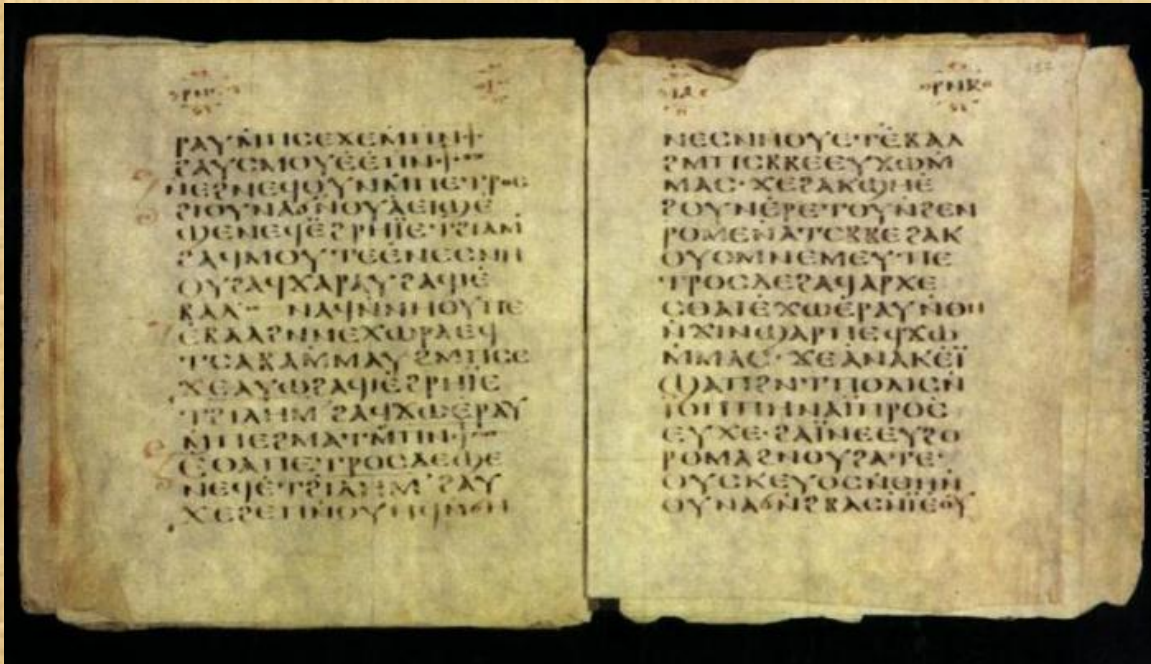 ⲣⲁⲩⲙ̇ⲡⲥⲉϫⲉⲙ̇ⲡⲛ⳨
ϩⲁⲩⲥⲙⲟⲩⲉ̇ⲉⲡⲛ⳨
ⲛⲉϩⲛⲉϥⲟⲩⲛⲙ̇ⲡⲉⲧⲣⲟⲥ
ϩⲓⲟⲩⲛⲁϭⲛ̇ⲟⲩⲁⲉⲓϣⲉ
ϣⲉⲛⲉϥⲉ̇ϩⲣⲏⲓ̈ⲉⲧϩⲓⲗⲙ
ϩⲁϥⲙⲟⲩⲧⲉⲉ̇ⲛⲉⲥⲛⲏ
ⲟⲩϩⲁϥⲭⲁⲣⲁⲩ·ϩⲁϥⲓⲉ̇
ⲃⲁⲗ ⲛⲁϥⲛ̇ⲛⲏⲟⲩⲡⲉ
ⲉ̇ⲃⲁⲗϩⲛⲛⲉⲭⲱⲣⲁⲉϥ
ⲧⲥⲁⲃⲁⲙ̇ⲙⲁⲩϩⲙⲡⲥⲉ
ϫⲉⲁⲩⲱϩⲁϥⲓⲉ̇ϩⲣⲏⲓ̈ⲉ
ⲧϩⲓⲗⲏⲙ ϩⲁϥϫⲱⲉ̇ⲣⲁⲩ
ⲙ̇ⲡⲉϩⲙⲁⲧⲙ̇ⲡⲛ⳨
ϩⲟⲧⲁⲡⲉⲧⲣⲟⲥⲇⲉϣⲉ
ⲛⲉϥⲉ̇ⲧϩⲓⲗⲏⲙ ϩⲁⲩ
ϫⲉⲣⲉⲧⲛ̇ⲟⲩⲛϥⲛ̇ϭⲏ
ⲣⲛⲃ
ⲛⲉⲥⲛⲏⲟⲩⲉⲧⲉ̇ⲃⲁⲗ
ϩⲙⲡⲥⲃⲃⲉⲉⲩϫⲱⲙ̇
ⲙⲁⲥ·ϫⲉϩⲁⲕϣⲛⲉ̇
ϩⲟⲩⲛⲉ̇ⲣⲉⲧⲟⲩⲛ̇ϩⲉⲛ
ⲣⲟⲙⲉⲛ̇ⲁⲧⲥⲃⲃⲉϩⲁⲕ
ⲟⲩⲟⲙⲛⲉⲙⲉⲩ·ⲡⲉ
ⲧⲣⲟⲥⲇⲉϩⲁϥⲁⲣⲭⲉ
ⲥⲑⲁⲓⲉ̇ϫⲱⲉ̇ⲣⲁⲩⲛ̇ⲑⲏ
ⲛ̇ϫⲓⲛϣⲁⲣⲡⲉϥϫⲱ
ⲙ̇ⲙⲁⲥ·ϫⲉⲁ̇ⲛⲁⲕⲉⲓ̈
ϣⲁⲡϩⲛⲧⲡⲟⲗⲓⲥⲛ̇
ⲓⲟⲡⲡⲏⲛⲁⲓ̈ⲡⲣⲟⲥ
ⲉⲩⲭⲉ·ϩⲁⲓ̈ⲛⲉⲉⲩϩⲟ
ⲣⲟⲙⲁϩⲛⲟⲩϩⲁⲧⲉ·
ⲟⲩⲥⲕⲉⲩⲟⲥⲛ̇ⲑⲏⲛ̇
ⲟⲩⲛⲁϭⲛ̇ϩⲃⲁⲥⲛ̇ⲓ̈ⲉⲟⲩ